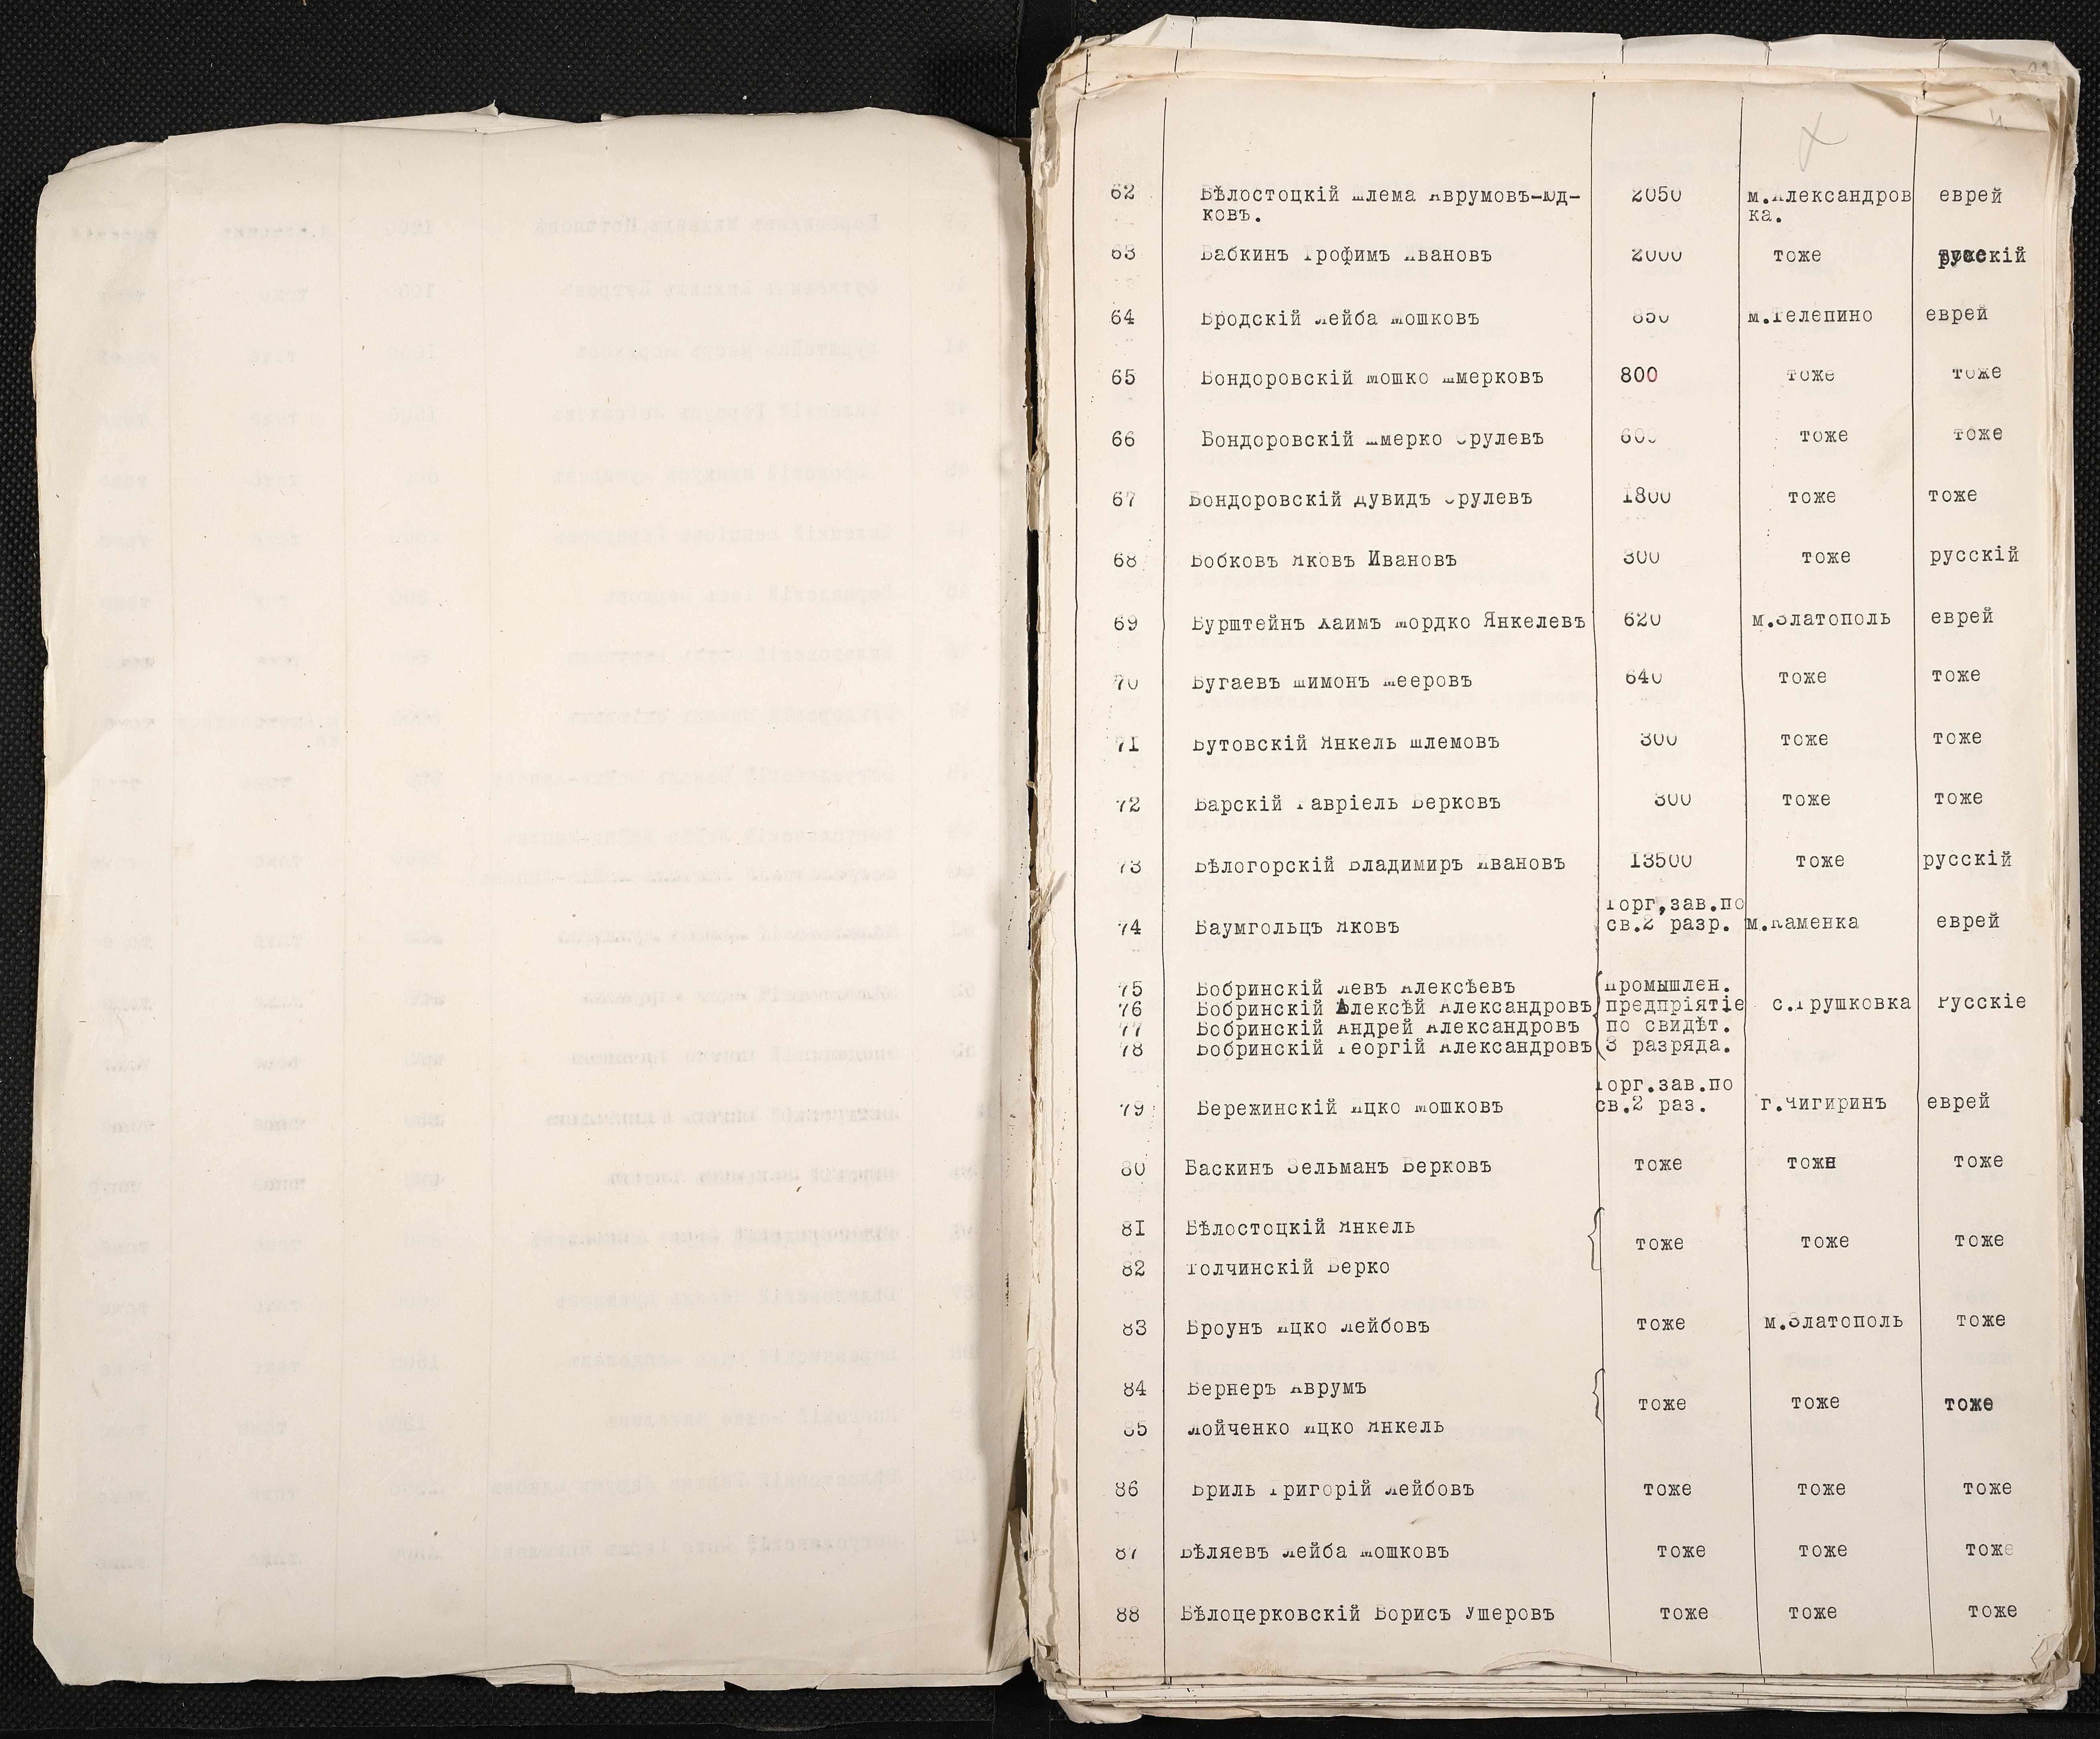 62 Бѣлостоцкій Шлема Аврумовъ-Юд- 2050 м.Александров еврей
ковъ. ка.
63 Бабкинъ Трофимъ Ивановъ 2000 тоже русскій
64 Бродскій Лейба Мошковъ 650 м.Телепино еврей
65 Бондоровскій Мошко Шмерковъ 800 тоже тоже
66 Бондоровскій Шмерко Срулевъ 600 тоже тоже
67 Бондоровскій Дувидъ Срулевъ 1800 тоже тоже
68 Бобковъ Яковъ Ивановъ 300 тоже русскій
69 Бурштейнъ Хаимъ Мордко Янкелевъ 620 м.Златополь еврей
70 Бугаевъ Шимонъ Мееровъ 640 тоже тоже
71 Бутовскій Янкель Шлемовъ 300 тоже тоже
72 Барскій Гавріель Берковъ 300 тоже тоже
73 Бѣлогорскій Владимиръ Ивановъ 13500 тоже русскій
Торг,зав.по
74 Баумгольцъ Яковъ св.2 разр. м.Каменка еврей
75 Бобринскій Левъ Алексѣевъ промышлен.
76 Бобринскій Алексѣй Александровъ предпріятіе с.Грушковка Русскіе
77 Бобринскій Андрей Александровъ по свидѣт.
78 Бобринскій Георгій Александровъ 3 разряда.
Торг.зав.по
79 Бережинскій Ицко Мошковъ св.2 раз. г.Чигиринъ еврей
80 Баскинъ Зельманъ Берковъ тоже тожн тоже
81 Бѣлостоцкій Янкель
тоже тоже тоже
82 Толчинскій Берко
83 Броунъ Ицко Лейбовъ тоже м.Златополь тоже
84 Бернеръ Аврумъ
тоже тоже тоже
85 Лойченко Ицко Янкель
86 Бриль Григорій Лейбовъ тоже тоже тоже
87 Бѣляевъ Лейба Мошковъ тоже тоже тоже
88 Бѣлоцерковскій Борисъ Ушеровъ тоже тоже тоже